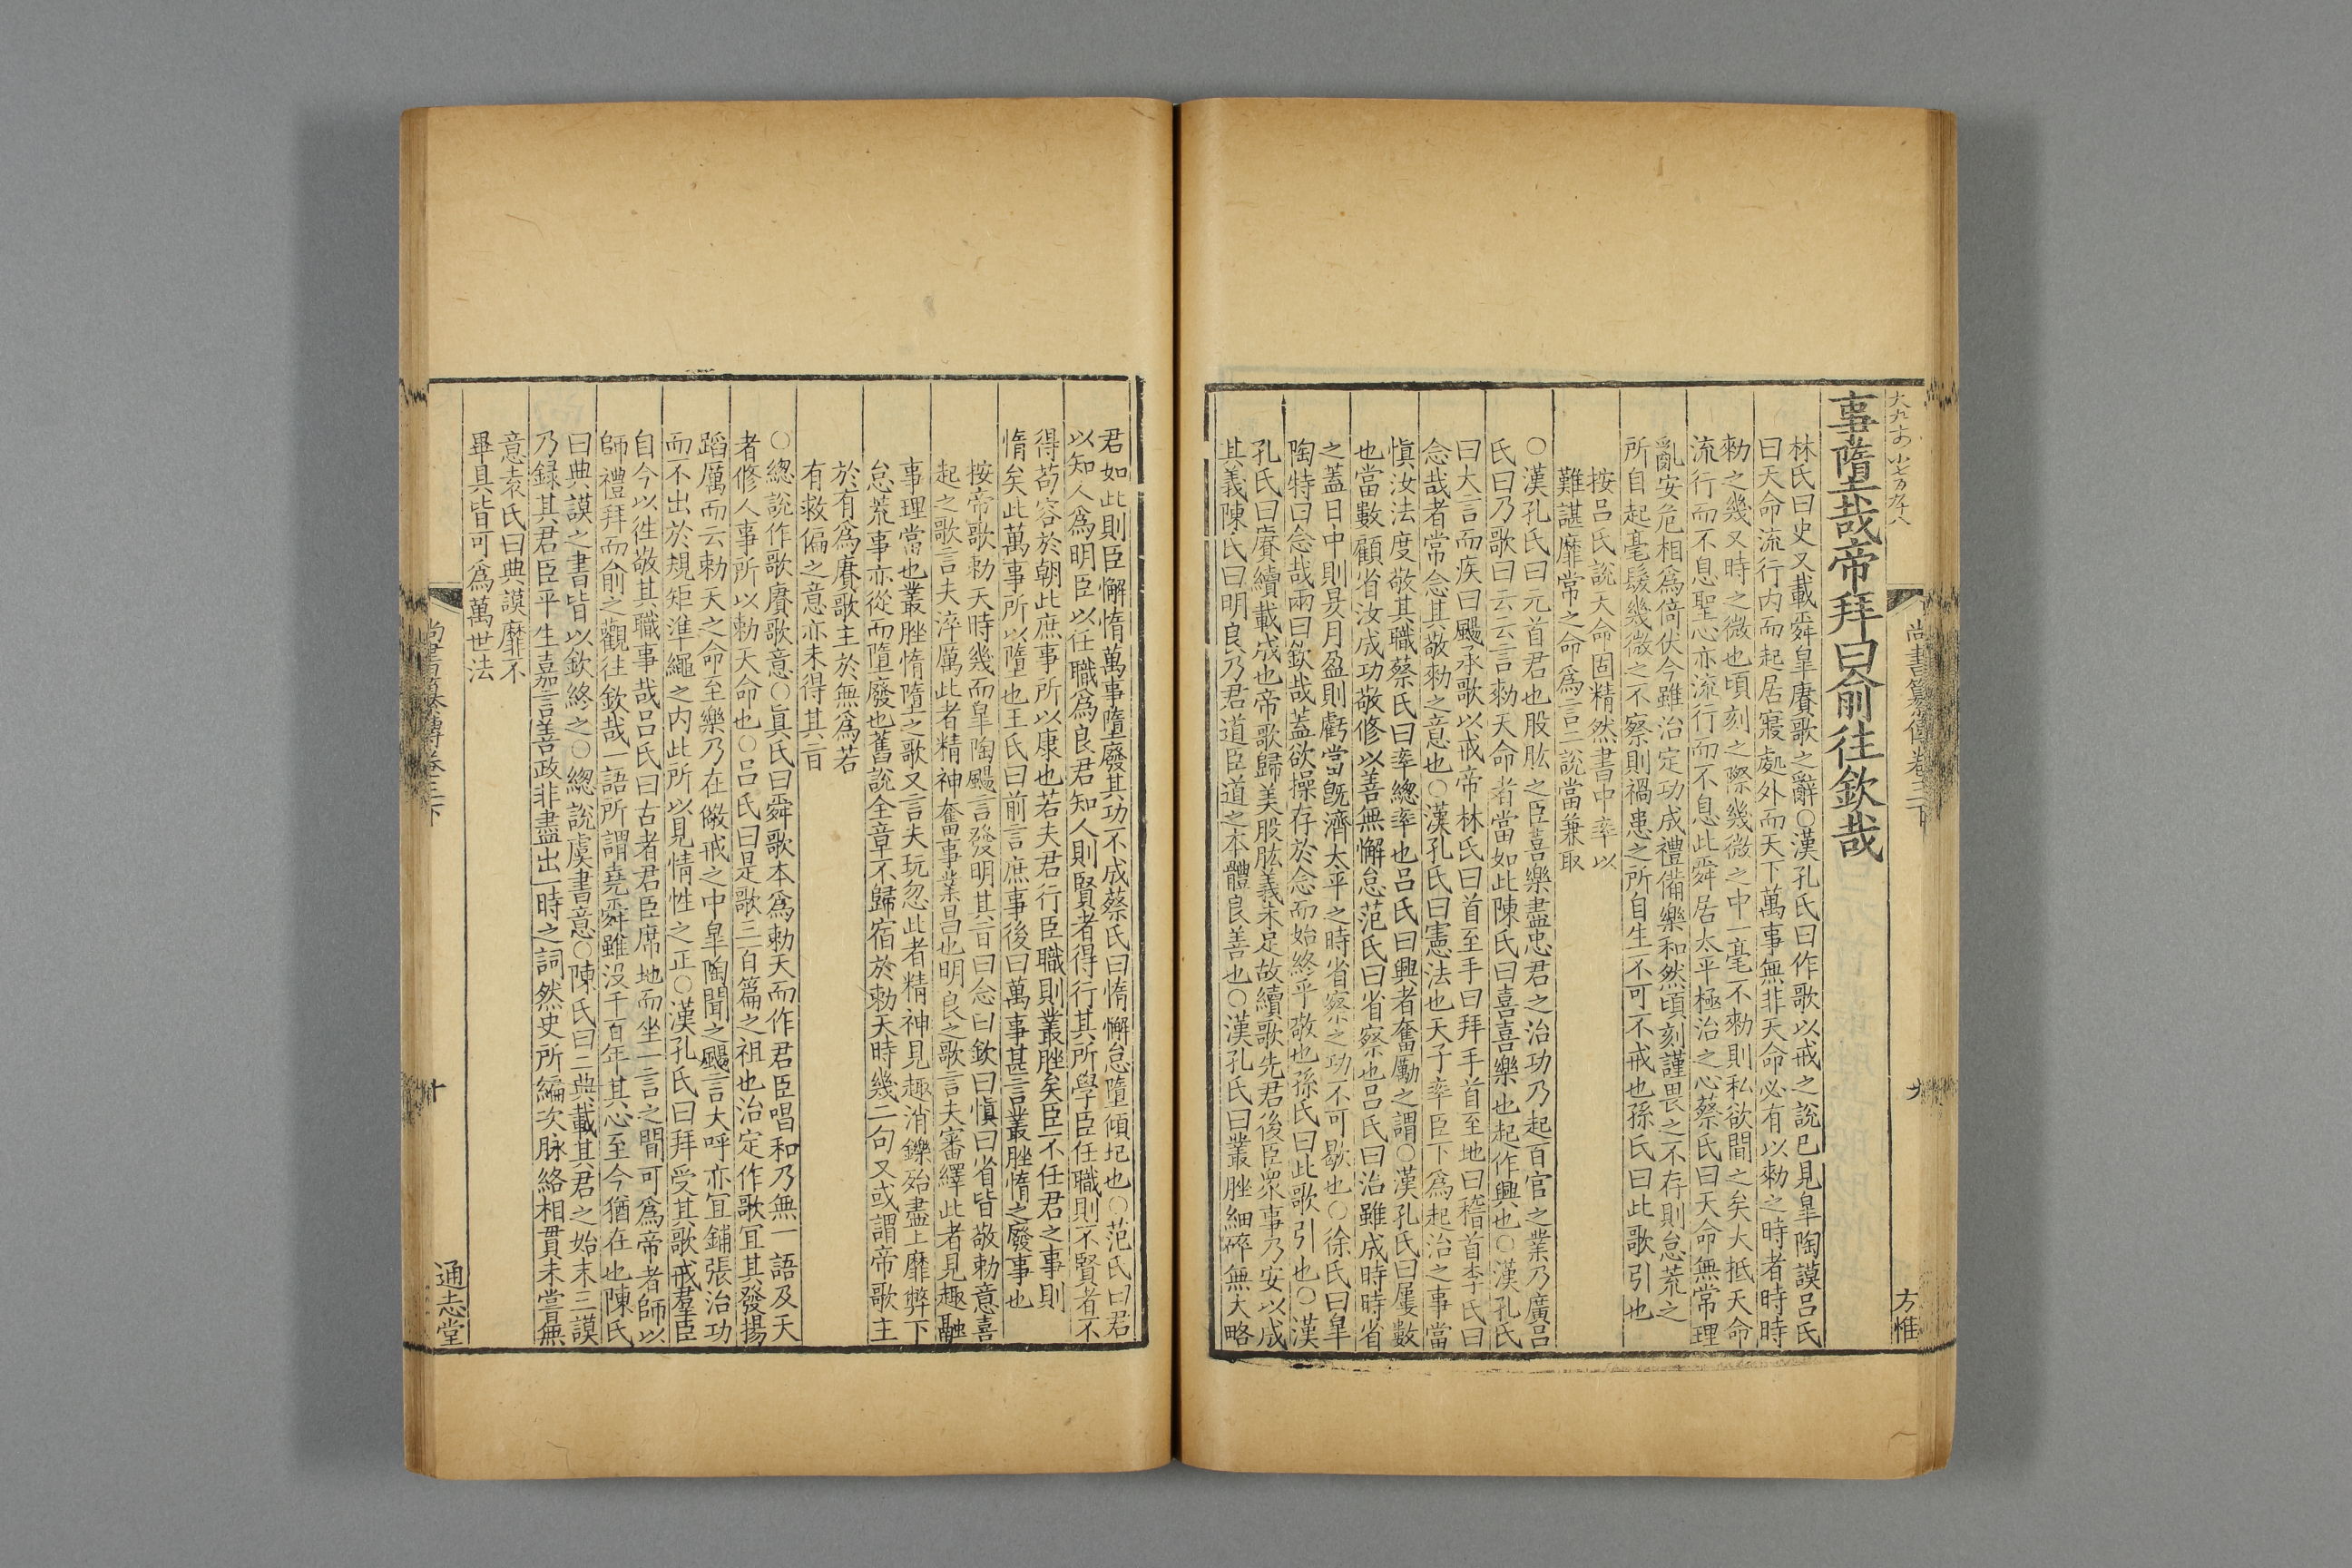 尚書纂傳卷三下
九
方惟
事隳哉帝拜曰俞往欽哉
林氏曰史又載舜皐賡歌之辭○漢孔氏曰作歌以戒之說已見皐陶謨呂氏
曰天命流行内而起居寢處外而天下萬事無非天命必有以勑之時者時時
勑之幾又時之微也頃刻之際幾微之中一毫不勑則私欲間之矣大抵天命
流行而不息聖心亦流行而不息此舜居太平極治之心蔡氏曰天命無常理
亂安危相爲倚伏今雖治定功成禮備樂和然頃刻謹畏之不存則怠荒之
所自起毫髮幾微之不察則禍患之所自生不可不戒也孫氏曰此歌引也
按呂氏說天命固精然書中率以
難諶靡常之命爲言二說當兼取
○漢孔氏曰元首君也股肱之臣喜樂盡忠君之治功乃起百官之業乃廣呂
氏曰乃歌曰云云言勑天命者當如此陳氏曰喜喜樂也起作興也○漢孔氏
曰大言而疾曰颺承歌以戒帝林氏曰首至手曰拜手首至地曰稽首李氏曰
念哉者常念其敬勑之意也○漢孔氏曰憲法也天子率臣下爲起治之事當
愼汝法度敬其職蔡氏曰率緫率也呂氏曰興者奮勵之謂○漢孔氏曰屢數
也當數顧省汝成功敬修以善無懈怠范氏曰省察也呂氏曰治雖成時時省
之蓋日中則昃月盈則虧當旣濟太平之時省察之功不可歇也○徐氏曰皐
陶特曰念哉兩曰欽哉蓋欲操存於念而始終乎敬也孫氏曰此歌引也○漢
孔氏曰賡續載成也帝歌歸美股肱義未足故續歌先君後臣衆事乃安以成
其義陳氏曰明良乃君道臣道之本體良善也○漢孔氏曰叢脞細碎無大略
君如此則臣懈惰萬事墮廢其功不成蔡氏曰惰懈怠墮傾圮也○范氏曰君
以知人爲明臣以任職爲良君知人則賢者得行其所學臣任職則不賢者不
得苟容於朝此庶事所以康也若夫君行臣職則叢脞矣臣不任君之事則
惰矣此萬事所以墮也王氏曰前言庶事後曰萬事甚言叢脞惰之廢事也
按帝歌勑天時幾而皐陶颺言發明其旨曰念曰欽曰愼曰省皆敬勑意喜
起之歌言夫淬厲此者精神奮事業昌也明良之歌言夫審繹此者見趣融
事理當也叢脞惰墮之歌又言夫玩忽此者精神見趣消鑠殆盡上靡弊下
怠荒事亦從而墮廢也舊說全章不歸宿於勑天時幾二句又或謂帝歌主
於有爲賡歌主於無爲若
有救偏之意亦未得其旨
○緫說作歌賡歌意○眞氏曰舜歌本爲勑天而作君臣唱和乃無一語及天
者修人事所以勑天命也○呂氏曰是歌三百篇之祖也治定作歌宜其發揚
蹈厲而云勑天之命至樂乃在儆戒之中皐陶聞之颺言大呼亦宜鋪張治功
而不出於規矩準繩之内此所以見情性之正○漢孔氏曰拜受其歌戒羣臣
自今以徃敬其職事哉呂氏曰古者君臣席地而坐一言之間可爲帝者師以
師禮拜而俞之觀往欽哉一語所謂堯舜雖没千百年其心至今猶在也陳氏
曰典謨之書皆以欽終之○緫說虞書意○陳氏曰二典載其君之始末三謨
乃録其君臣平生嘉言善政非盡出一時之詞然史所編次脉絡相貫未嘗無
意袁氏曰典謨靡不
畢具皆可爲萬世法
尚書纂傳卷三下
十
通志堂